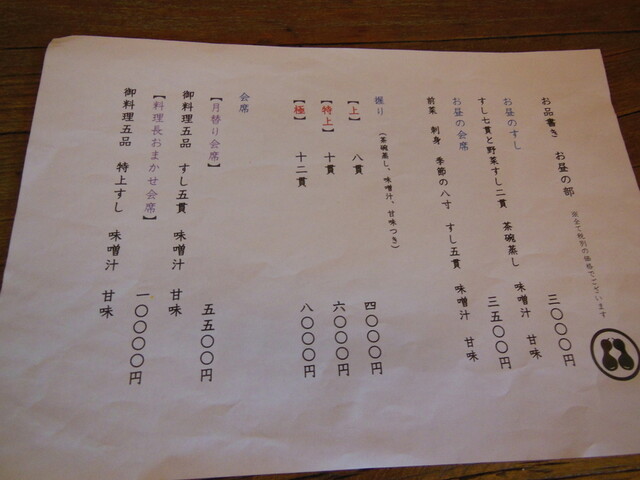 ※全て税別の価格でございます
お品書き お昼の部
お昼のすし 三〇〇〇円
すし七貫と野菜すし二貫 茶碗蒸し 味噌汁 甘味
お昼の会席 三五〇〇円
前菜 刺身 季節の八寸 すし五貫 味噌汁 甘味
握り (茶碗蒸し、味噌汁、甘味つき)
【上】 八貫 四〇〇〇円
【特上】 十貫 六〇〇〇円
【極】 十二貫 八〇〇〇円
会席
【月替り会席】 五五〇〇円
御料理五品 すし五貫 味噌汁 甘味
【料理長おまかせ会席】 一〇〇〇〇円
御料理五品 特上すし 味噌汁 甘味